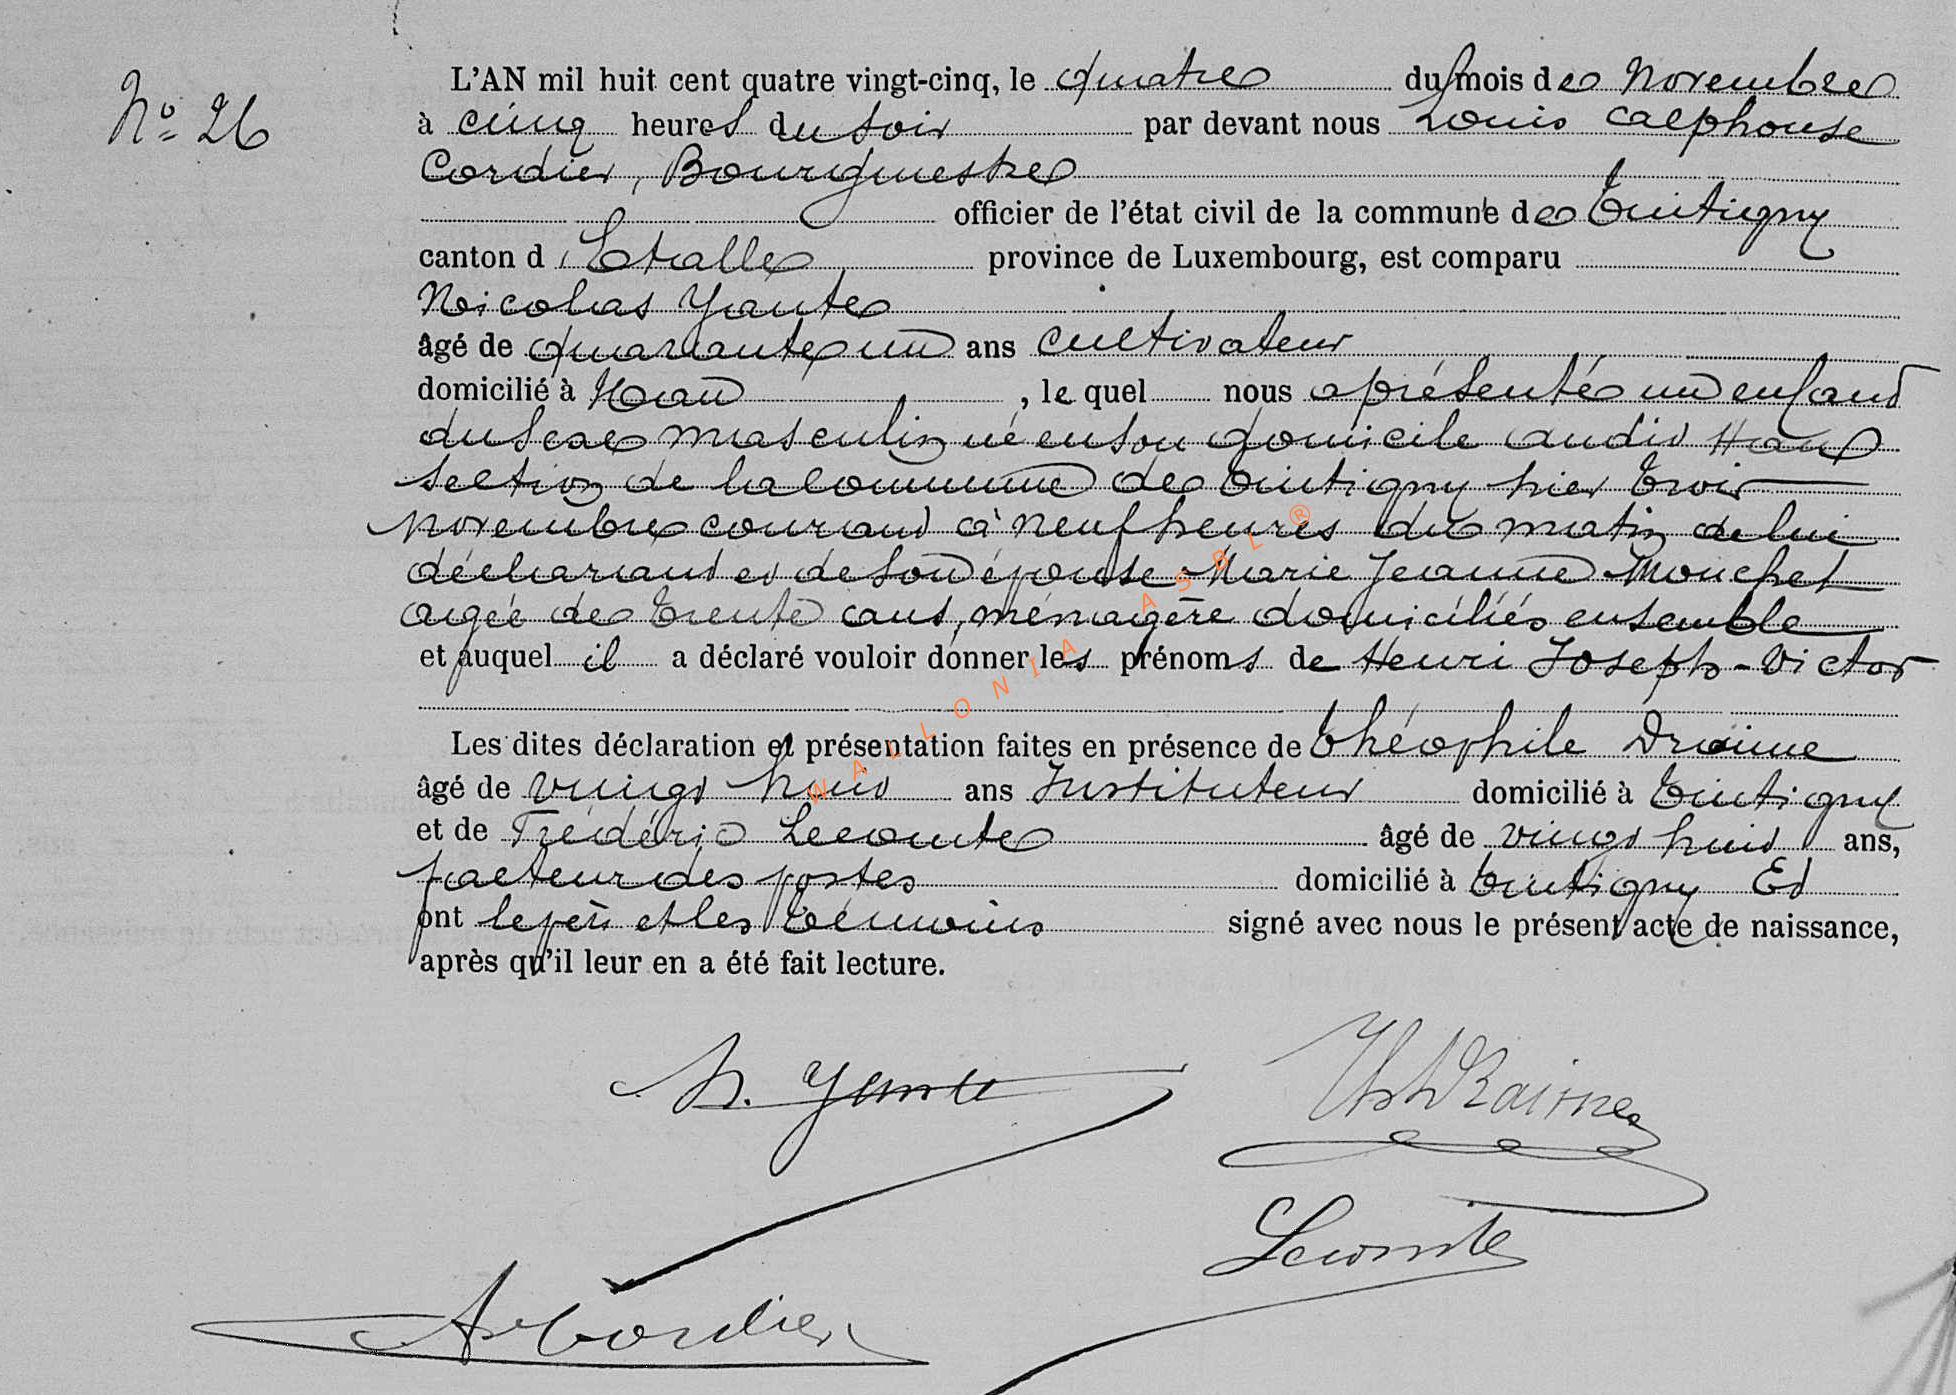 N° 26
L'AN mil huit cent quatre vingt-cinq, le quatre du mois de Novembre
à cinq heures du soir par devant nous Louis Alphonse
Cordier, Bourgmestre
officier de l'état civil de la commune de Tintigny
canton d'Etalle, province de Luxembourg, est comparu
Nicolas Yante
âgé de quarante un ans cultivateur
domicilié à Han, le quel nous a présenté un enfant
du sexe masculin né en son domicile audit Han
section de la commune de Tintigny hier trois
novembre courant à neuf heures du matin de lui
déclarant et de son épouse Marie Jeanne Mouchet
agée de trente ans, ménagère domiciliés ensemble
et auquel il a déclaré vouloir donner les prénoms de Henri Joseph-Victor
Les dites déclaration et présentation faites en présence de Théophile Draime
âgé de vingt huit ans Instituteur domicilié à Tintigny
et de Frédéric Lecomte âgé de vingt huit ans,
facteur des postes domicilié à Tintigny Et
ont le père et les témoins signé avec nous le présent acte de naissance,
après qu'il leur en a été fait lecture.
WALLONIA ASBL ®
N. Yante
Th Draime
Lecomte
A Cordier